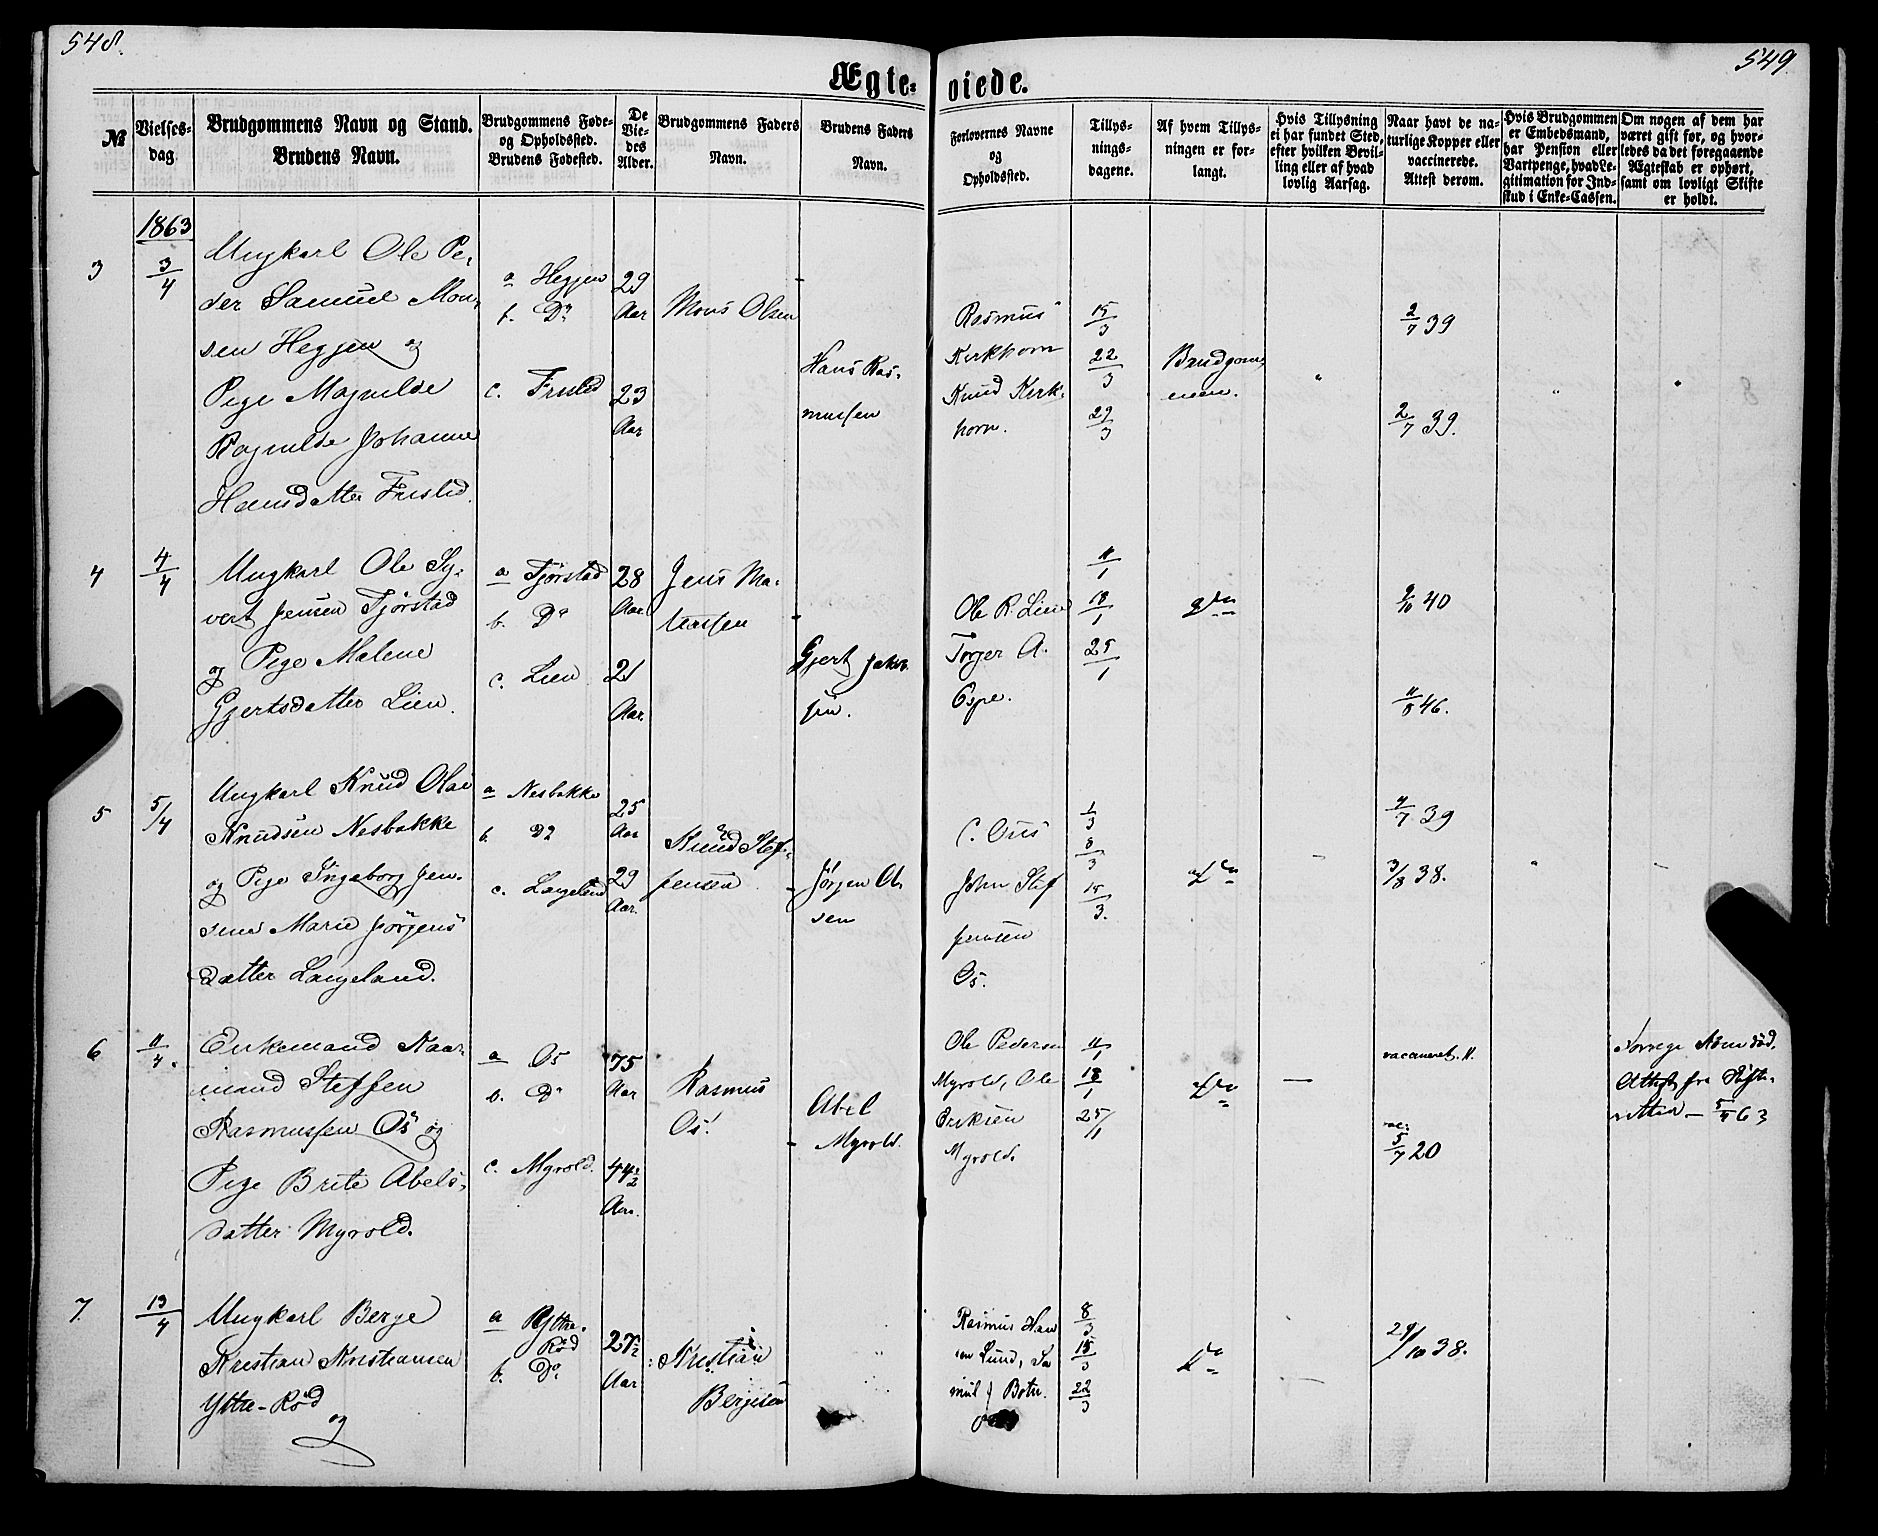 548.
549
Ægte-
viede.
№
Vielses-
dag.
Brudgommens Navn og Stand.
Brudens Navn.
Brudgommens Føde-
og Opholdssted.
Brudens Fødested.
De
Vie-
des
Alder.
Brudgommens Faders
Navn.
Brudens Faders
Navn.
Forlovernes Navne
og
Opholdssted.
Tillys-
nings-
dagene.
Af hvem Tillys-
ningen er for-
langt.
Hvis Tillysning
ei har fundet Sted,
efter hvilken Bevil-
ling eller af hvad
lovlig Aarsag.
Naar havt de na-
turlige Kopper eller
vaccinerede.
Attest derom.
Hvis Brudgommen
er Embedsmand,
har Pension eller
Vartpenge, hvad Le-
gitimation for Ind-
skud i Enke-Cassen.
Om nogen af dem har
været gift før, og hvor-
ledes da det foregaaende
Ægteskab er ophørt,
samt om lovligt Skifte
er holdt.
1863
3
3/4
Ungkarl Ole Pe-
der Samuel Mon-
sen Hegjen og
Pige Magnilde
Ragnilde Johanne
Hansdatter Fristed.
a Hegjen
b. Do
c. Fristed
29
Aar
23
Aar
Mons Olsen
Hans Ras-
mussen
Rasmus
Kirkhorn
Knud Kirk-
horn.
15/3
22/3
29/3
Brudgom-
men.
2/7 39
2/7 39.
4
4/4
Ungkarl Ole Sy-
vert Jensen Tjørstad
og Pige Malene
Gjertsdatter Lien.
a Tjørstad
b. Do
c. Lien
28
Aar
21
Aar.
Jens Ma-
Gjert Jakob-
sen.
Ole R. Lien
Torger A.
Espe.
11/1
18/1
25/1
do
2/10 40
11/8 46.
5
5/4
Ungkarl Knud Olai
Knudsen Nesbakke
og Pige Ingeborg Jen-
sine Marie Jørgens
datter Langeland.
a Nesbakke
b. Do
c. Langeland
25
Aar
29
Aar.
Knud Stef-
fensen
Jørgen Ol-
sen
C. Aus
John Stef
fensen
Os.
1/3
8/3
15/3.
do
4/7 39
3/8 38.
6
11/4.
Enkemand Kaar-
mand Steffen
Rasmussen Os og
Pige Brite Abels-
datter Myrold.
a Os
b. Do
c. Myrold.
75
Aar
44½
Aar.
Rasmus
Os.
Abel
Myrold.
Ole Pedersen
Myrold, Ole
Eriksen
Myrold.
11/1
18/1
25/1
do
vaccineret.
vac:
5/7 20
Forrige Kone død.
Attest fra Skifte-
retten – 5/4 63
7.
13/4
Ungkarl Berge
Kristian Kristiansen
Yttre-Rød
og
a Yttre-
Rød
b. Do
27½
Aar
Kristian
Bergesen
Rasmus Han
sen Lund, Sa
muel J Botn.
8/3
15/3
22/3
do
29/10 38.